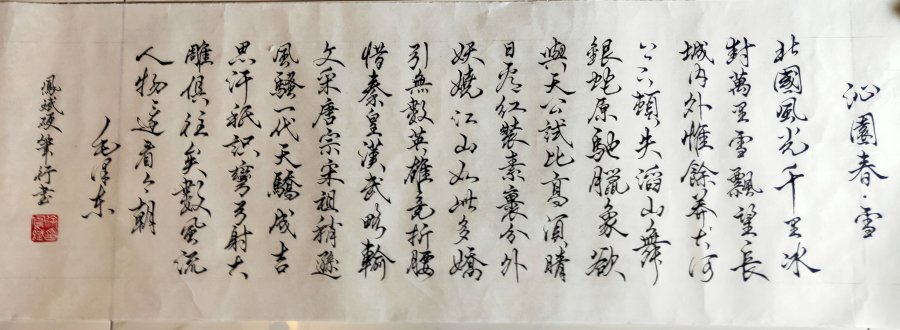 沁園春·雪
北國風光千里冰
封萬里雪飄望長
城內外惟餘莽々大河
上下頓失滔々山舞
銀蛇原馳臘象欲
與天公試比高須晴
日看紅裝素裹分外
妖嬈江山如此多嬌
引無數英雄竞折腰
惜秦皇漢武略輸
文采唐宗宋祖稍遜
風騷一代天驕成吉
思汗祇識彎弓射大
雕俱往矣數風流
人物還看今朝
毛澤東
鳳斌硬筆行書